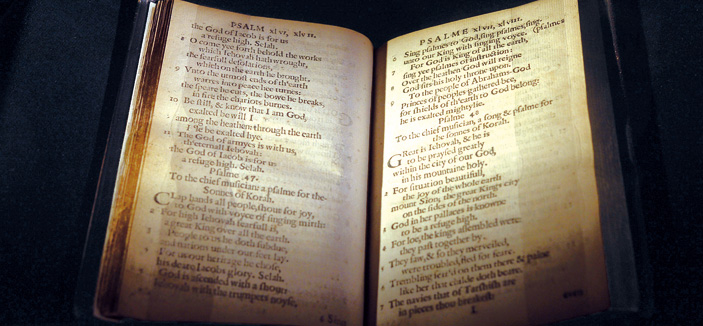 PSALM xlvi, xlvii.
the God of Iacob is for us
a refuge high. Selah.
8 O come yee forth behold the works
which Iehovah hath wrought,
the fearfull desolations,
which on the earth he brought.
9 Vnto the utmost ends of th'earth
warres into peace hee turnes:
the speare he cuts, the bowe he breaks,
in fire the chariots burnes.
10 Be still, & know that I am God,
exalted be will I
among the heathen: through the earth
I'le be exalted hye.
11 The God of armyes is with us,
th'eternall Iehovah:
the God of Iacob is for us
a refuge high. Selah.
Psalme 47.
To the chief musician: a psalme for the
Sonnes of Korah.
CLap hands all people, shout for joy,
to God with voyce of singing mirth:
2 For high Iehovah fearfull is,
a great King over all the earth.
3 People to us he doth subdue,
and nations under our feet lay.
For us our heritage he chose,
his deare Iacobs glory. Selah.
God is ascended with a shout:
Iehovah with the trumpets noyse,
6 Sing
PSALME xlvii, xlviii.
6 Sing psalmes to God, sing psalmes, sing
unto our King with singing voyce. (psalmes
7 For God is King of all the earth,
sing yee psalmes of instruction:
8 Over the heathen God will reigne
God sits his holy throne upon.
9 To the people of Abrahams God
Princes of peoples gathered bee,
for shields of th'earth to God belong:
he is exalted mightylie.
Psalme 48
To the chief musician, a song & psalme for
the sonnes of Korah.
GReat is Iehovah, & he is
to be praysed greatly
within the city of our God,
in his mountaine holy.
2 For situation beautifull,
the joy of the whole earth
mount Sion; the great Kings city
on the sides of the north.
3 God in her pallaces is knowne
to be a refuge high.
4 For loe, the kings assembled were:
they past together by.
5 They saw, & so they merveiled,
were troubled, fled for feare.
6 Trembling seiz'd on them there & paine
like her that childe doth beare.
7 The navies that of Tarshish are
in pieces thou breakest:
I